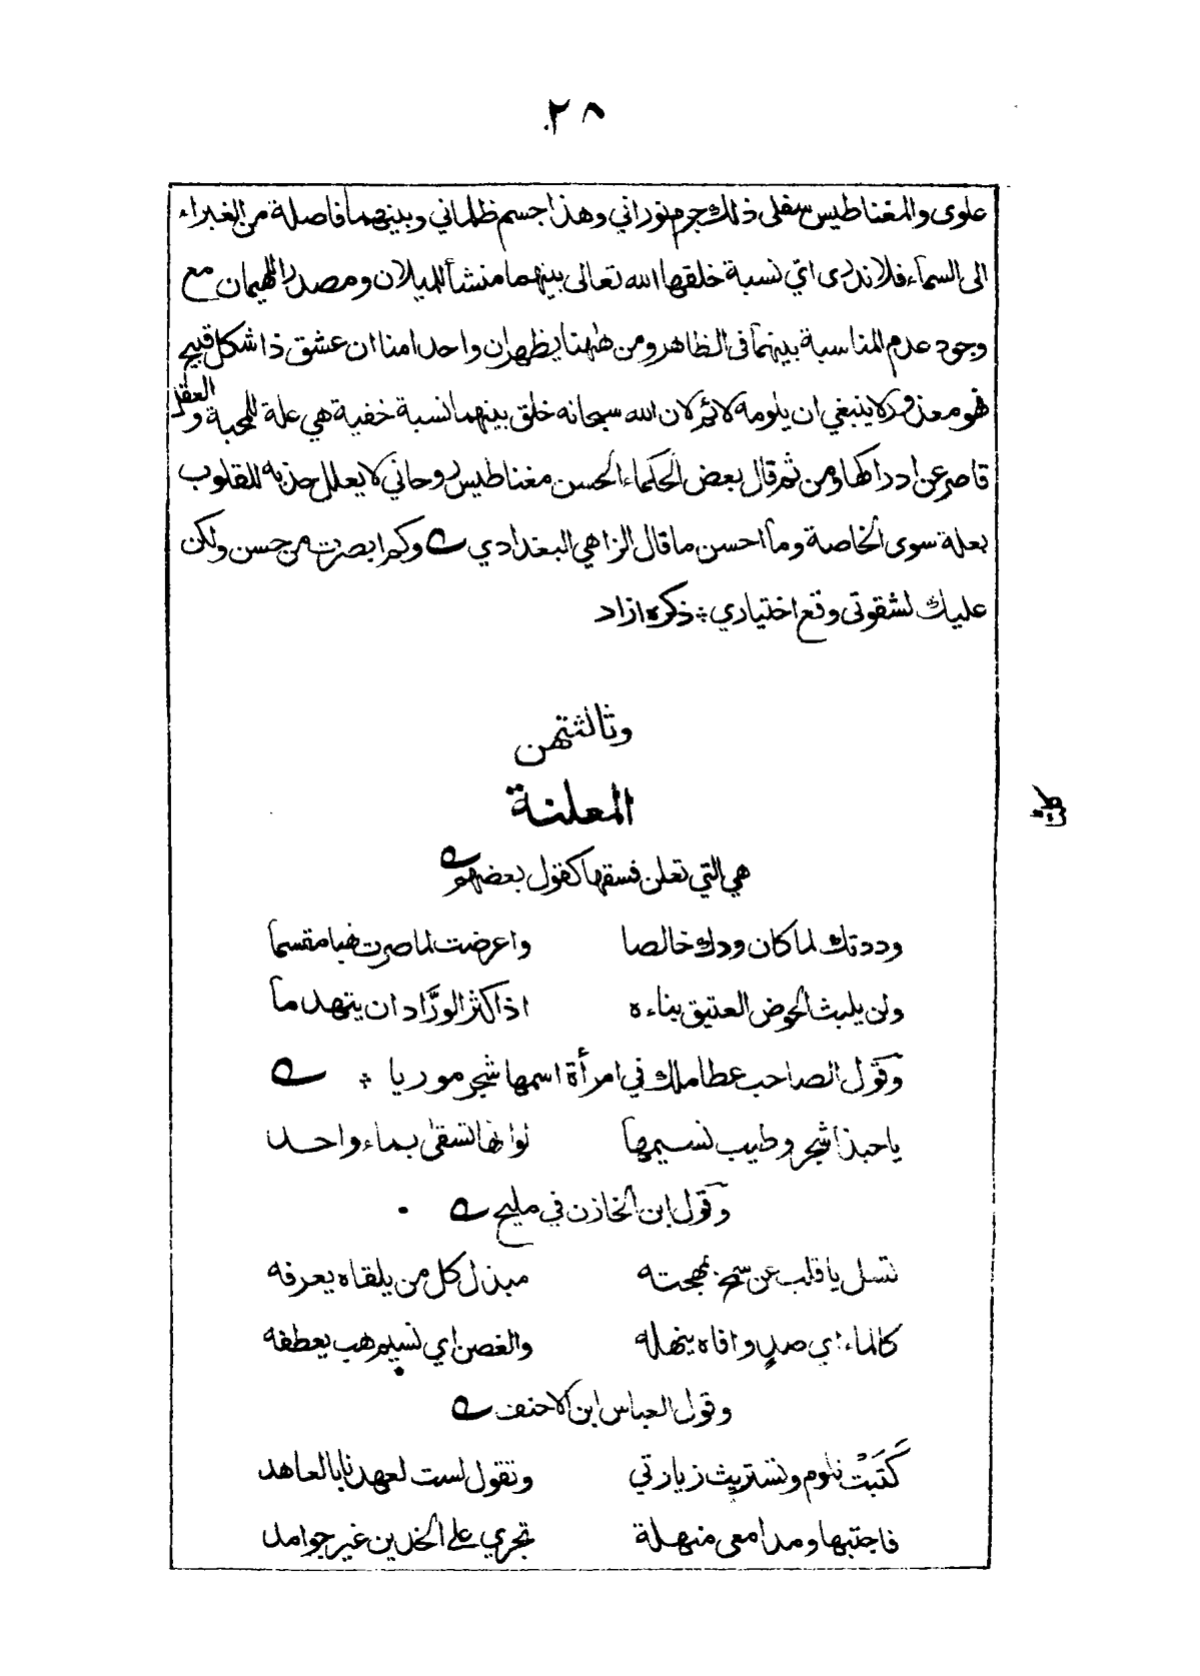 ٢٨
علوى والمغناطيس سفلى ذلك جرم نوراني وهذا جسم ظلماني وبينهما فاصلة من الغبراء
الى السماء فلا ندرى اى نسبة خلقها الله تعالى بينهما منشأ للميلان ومصدرا للهيمان مع
وجود عدم المناسبة بينهما فى الظاهر ومن ههنا يظهر ان واحدا منا ان عشق ذا شكل قبيح
فهو معذور لا ينبغي ان يلومه لائم لان الله سبحانه خلق بينهما نسبة خفية هي علة للمحبة والعقل
قاصر عن ادراكها ومن ثم قال بعض الحكماء الحسن مغناطيس روحاني لا يعلل جذبه للقلوب
بعلة سوى الخاصة وما احسن ما قال الزاهي البغدادي وكم ابصرت من حسن ولكن
عليك لشقوتى وقع اختياري ذكره ازاد
وثالثتهن
المعلنة
هي التي تعلن فسقها كقول بعضهم
وددتك لما كان ودك خالصا واعرضت لما صرت نهبا مقسما
ولن يلبث الحوض العتيق بناءه اذا كثر الورَّاد ان يتهدما
وقول الصاحب عطا ملك في امرأة اسمها شجر موريا
يا حبذا شجر وطيب نسيمها لو انها تسقى بماء واحد
وقول ابن الخازن في مليح
تسل يا قلب عن سمح بمهجته مبذل كل من يلقاه يعرفه
كالماء اي صدٍ وافاه ينهله والغصن اي نسيم هب يعطفه
وقول العباس ابن الاحنف
كَتَبَتْ تلوم وتستريث زيارتي وتقول لست لعهدنا بالعاهد
فاجبتها ومدامعى منهلة تجري على الخدين غير جوامد